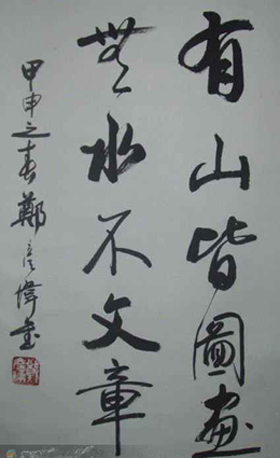 有山皆圖畫
無水不文章
甲申之春鄭偉書